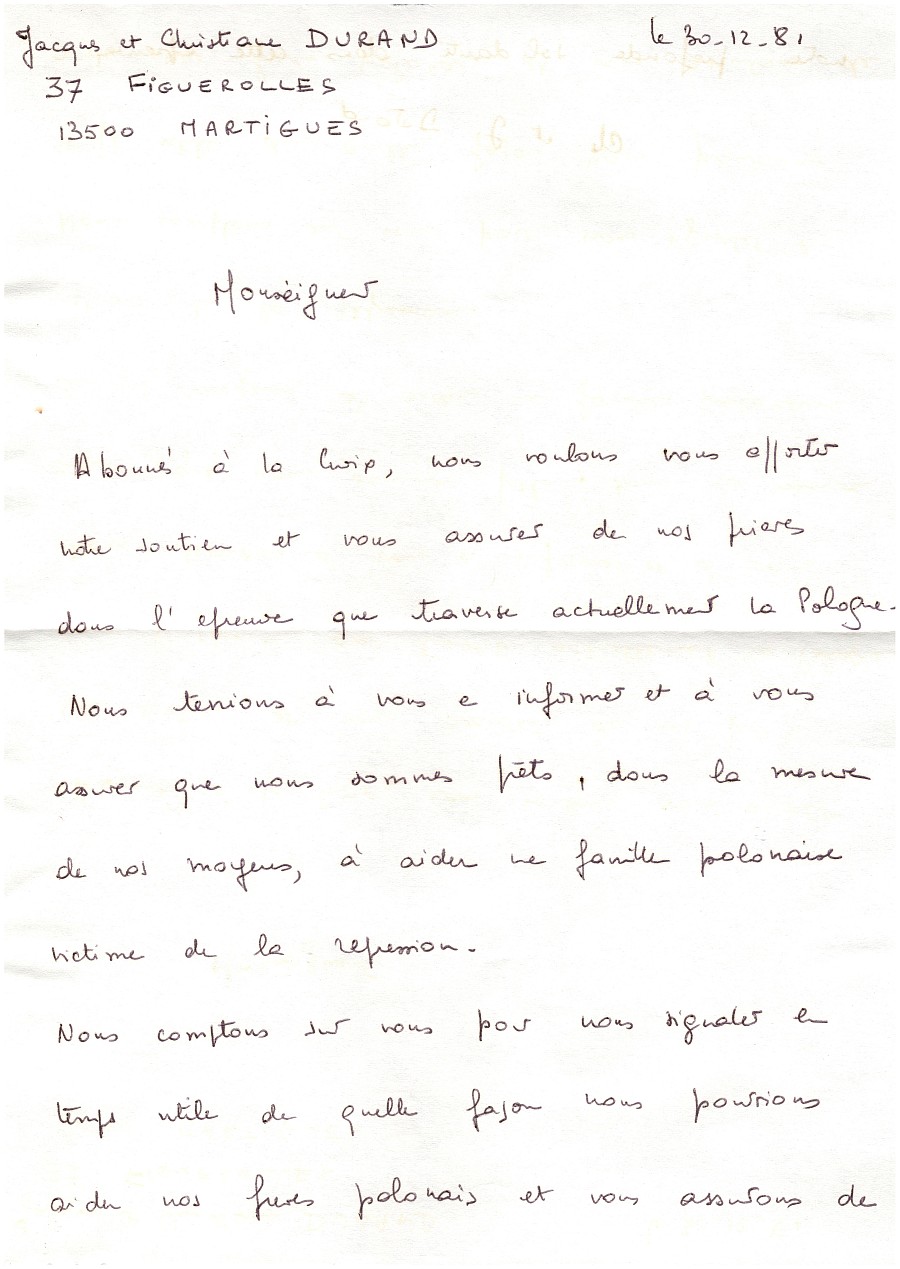 Jacques et Christiane DURAND le 30-12-81
37 FIGUEROLLES
13500 MARTIGUES
Monséigneur
Abonnés à la, nous voulons vous apporter
notre soutien et vous assurer de nos prieres
dans l'epreuve que traverse actuellement la Pologne.
Nous tenions à vous e informer et à vous
assurer que nous sommes prêts, dans la mesure
de nos moyens, à aider une famille polonaise
victime de la repression.
Nous comptons sur vous pour nous signaler en
temps utile de quelle façon nous pourrions
aider nos freres polonais et vous assurons de